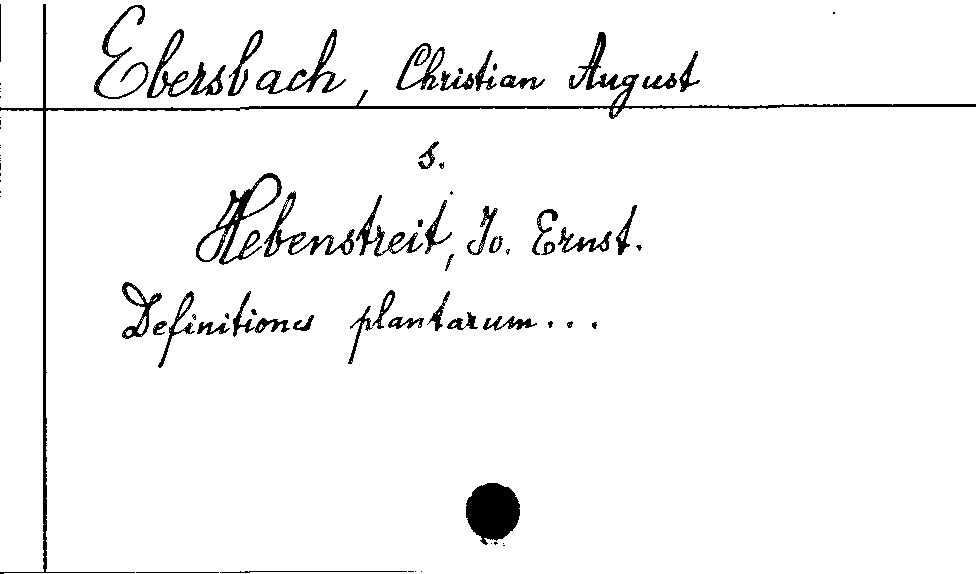 Ebersbach, Christian August
s.
Hebenstreit, Jo. Ernst.
Definitiones plantarum...